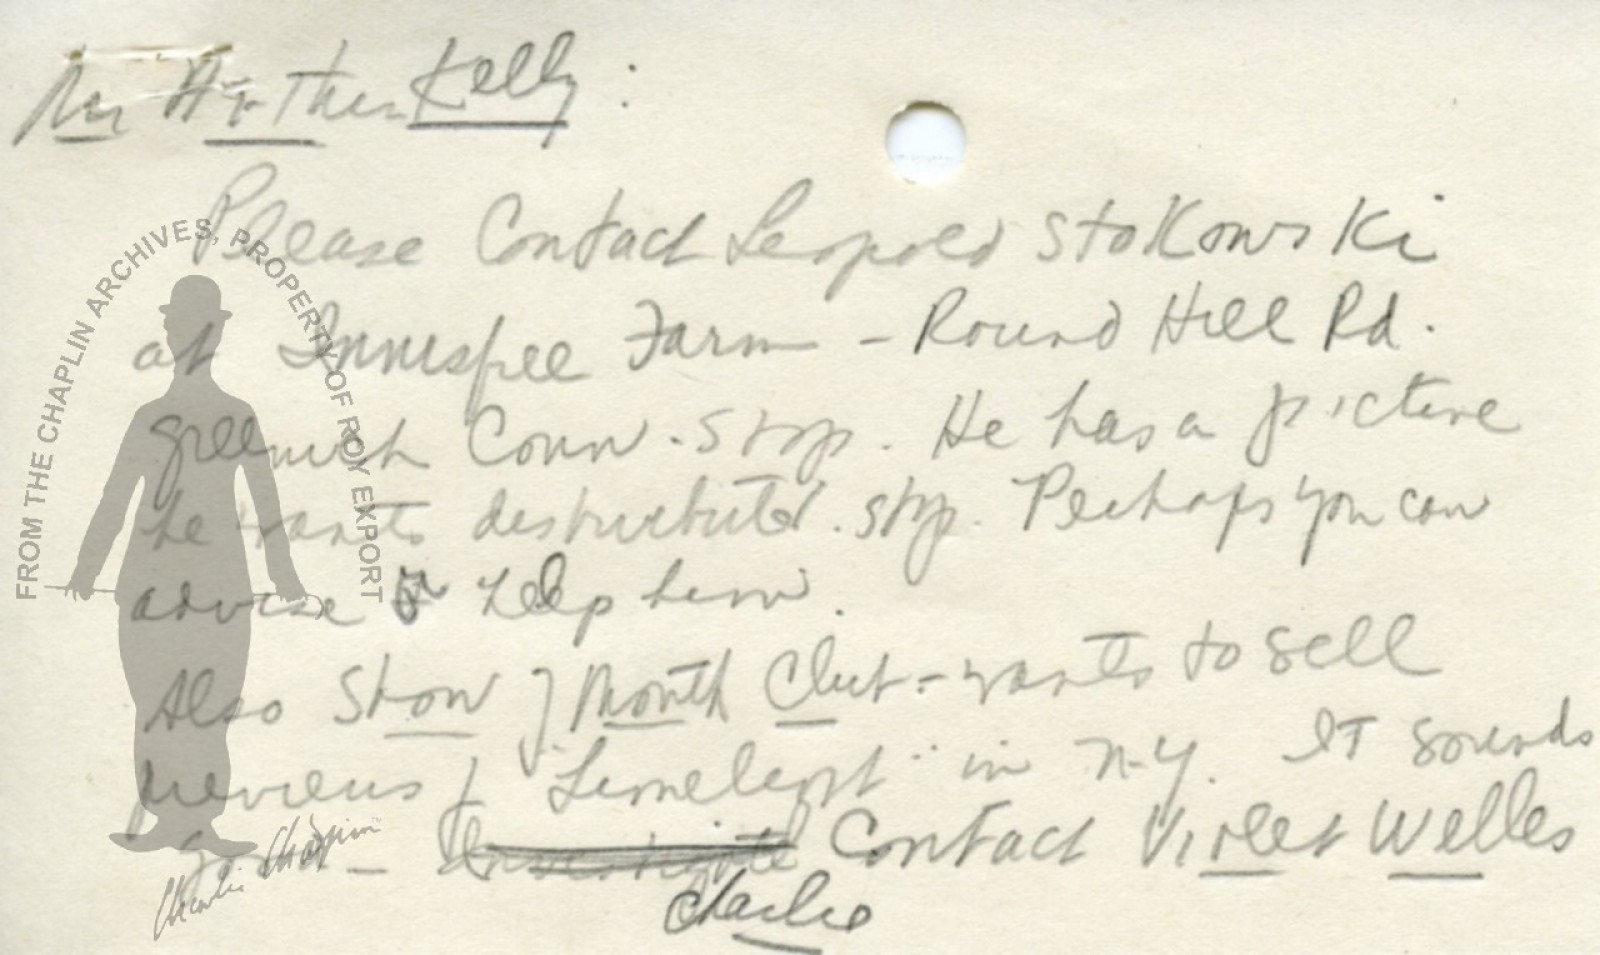 Mr Arthur Kelly :
Please Contact Leopold Stokowski
at Innisfree Farm – Round Hill Rd.
Greenwich Conn . Stop . He has a picture
he wants distributed . stop . Perhaps you can
advise or help him .
Also Show of Month Club – wants to sell
previews of "Limelight" in N-Y. It sounds
good – Investigate Contact Violet Welles
Charlie
FROM THE CHAPLIN ARCHIVES, PROPERTY OF ROY EXPORT
Charlie Chaplin™